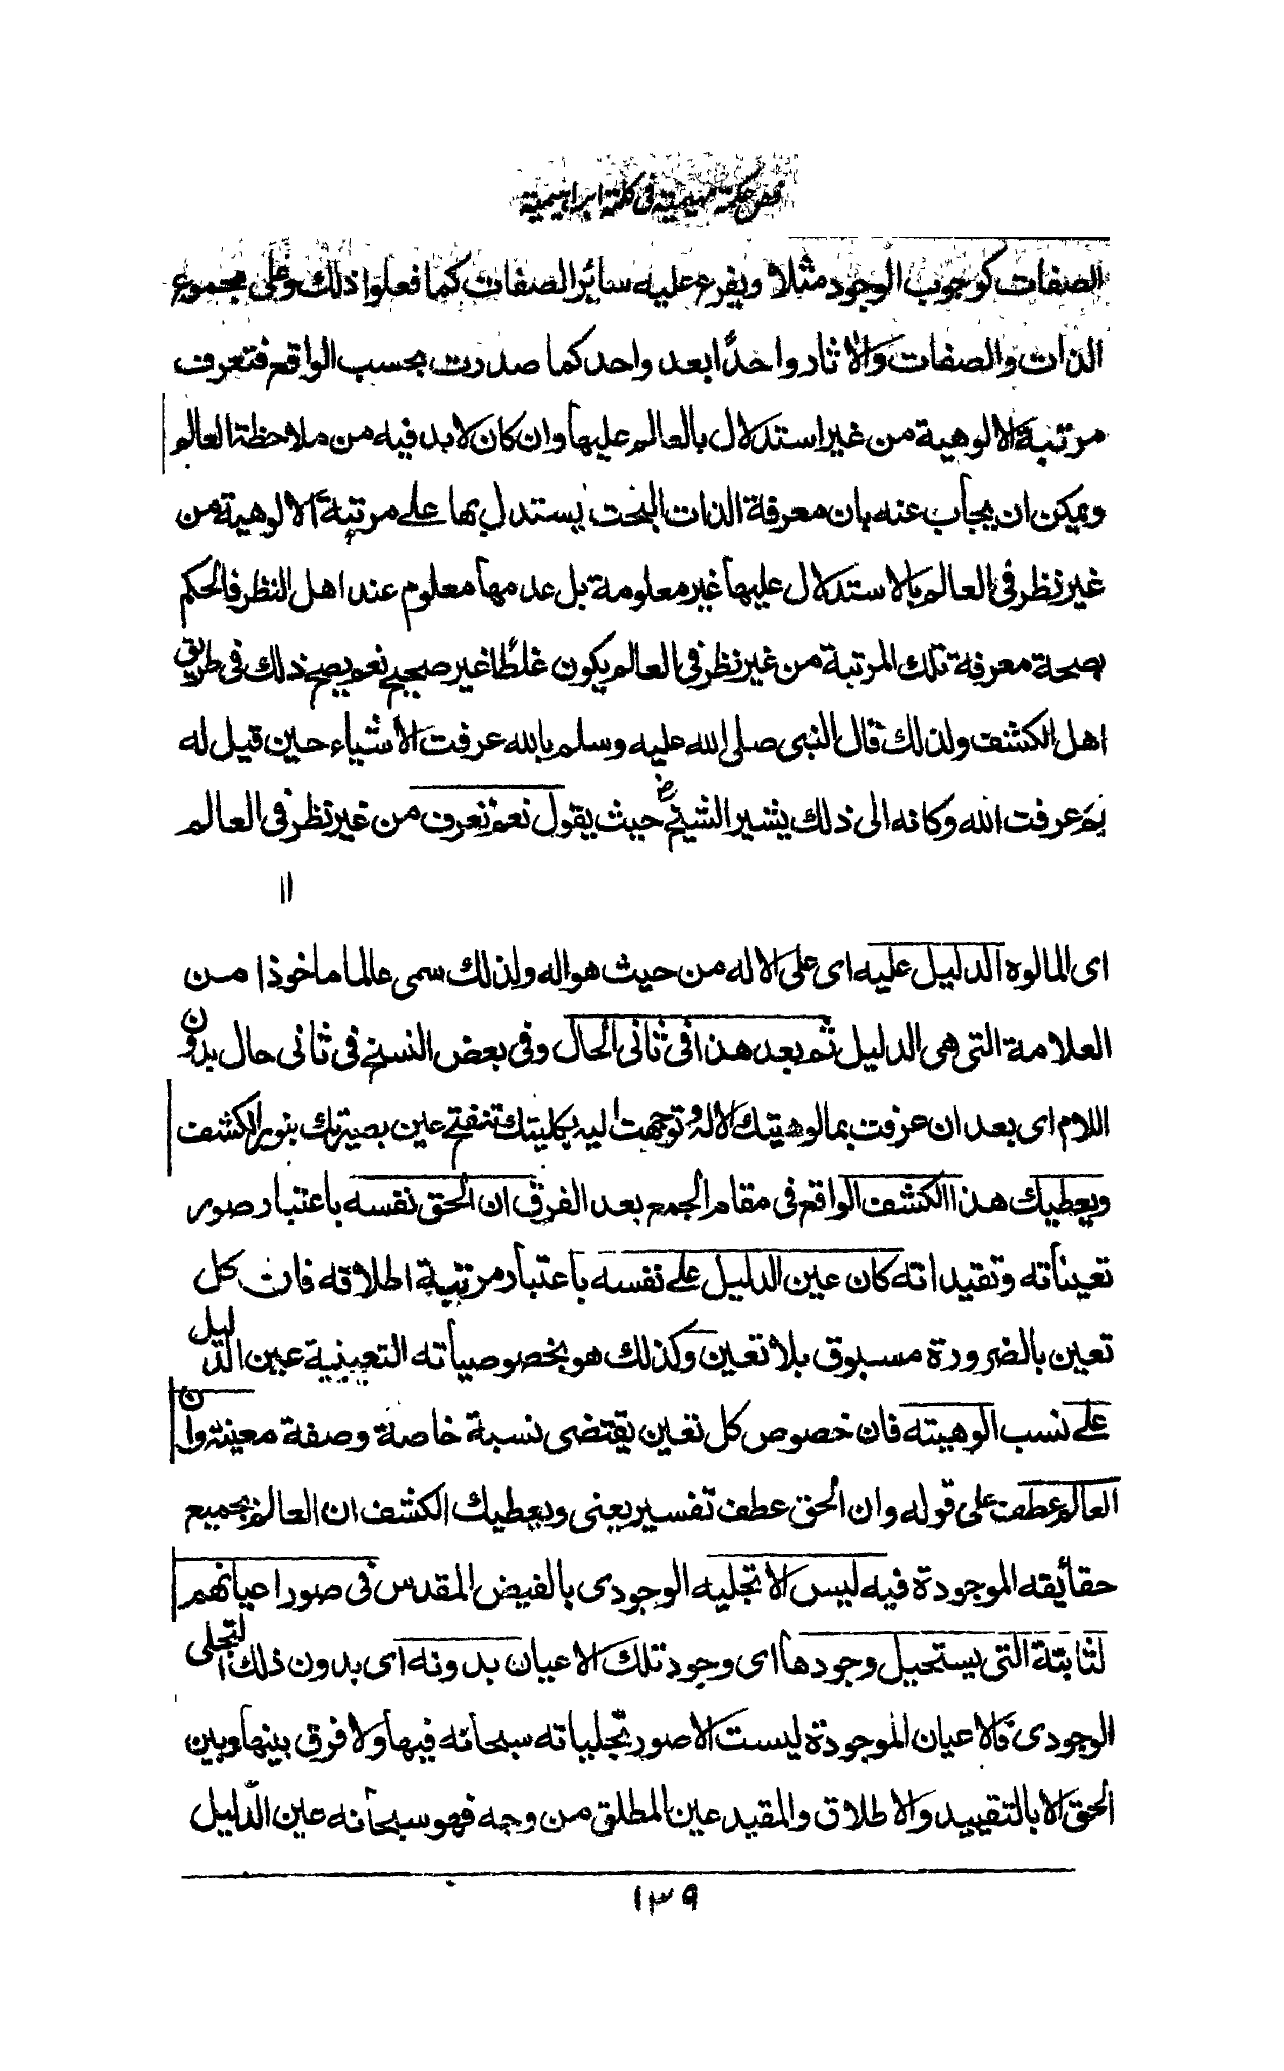 فص حكمة مهيمية فى كلمة ابراهيمية
الصفات كوجوب الوجود مثلا ويفرع عليه سائر الصفات كما فعلوا ذلك وعلى مجموع
الذات والصفات والاثار واحدًا بعد واحد كما صدرت بحسب الواقع فتعرف
مرتبة الالوهية من غير استدلال بالعالم عليها وان كان لابد فيه من ملاحظة العالم
ويمكن ان يجاب عنه بان معرفة الذات البحت يستدل بها على مرتبة الالوهية من
غير نظر فى العالم بالاستدلال عليها غير معلومة بل عدمها معلوم عند اهل النظر فالحكم
بصحة معرفة تلك المرتبة من غير نظر فى العالم يكون غلطًا غير صحيح نعم يصح ذلك فى طريق
اهل الكشف ولذلك قال النبى صلى الله عليه وسلم بالله عرفت الاشياء حين قيل له
بم عرفت الله وكانه الى ذلك يشير الشيخ رض حيث يقول نعم نعرف من غير نظر فى العالم
١١
اى المالوه الدليل عليه اى على الاله من حيث هو اله ولذلك سمى عالما ماخوذا من
العلامة التى هى الدليل ثم بعد هذا فى ثانى الحال وفى بعض النسخ فى ثانى حال بدون
اللام اى بعد ان عرفت بمالوهيتك الاله وتوجهت اليه بكليتك تنفتح عين بصيرتك بنور الكشف
ويعطيك هذا الكشف الواقع فى مقام الجمع بعد الفرق ان الحق نفسه باعتبار صور
تعيناته وتقيداته كان عين الدليل على نفسه باعتبار مرتبة اطلاقه فان كل
تعين بالضرورة مسبوق بلا تعين وكذلك هو بخصوصياته التعينية عين الدليل
على نسب الوهيته فان خصوص كل تعين يقتضى نسبة خاصة وصفة معينة وان
العالم عطف على قوله وان الحق عطف تفسير يعنى ويعطيك الكشف ان العالم بجميع
حقائقه الموجودة فيه ليس الا تجليه الوجودى بالفيض المقدس فى صور اعيانهم
لثابتة التى يستحيل وجودها اى وجود تلك الاعيان بدونه اى بدون ذلك التجلى
الوجودى فالاعيان الموجودة ليست الا صور تجلياته سبحانه فيها ولا فرق بينها وبين
الحق الا بالتقييد والاطلاق والمقيد عين المطلق من وجه فهو سبحانه عين الدليل
١٣٩